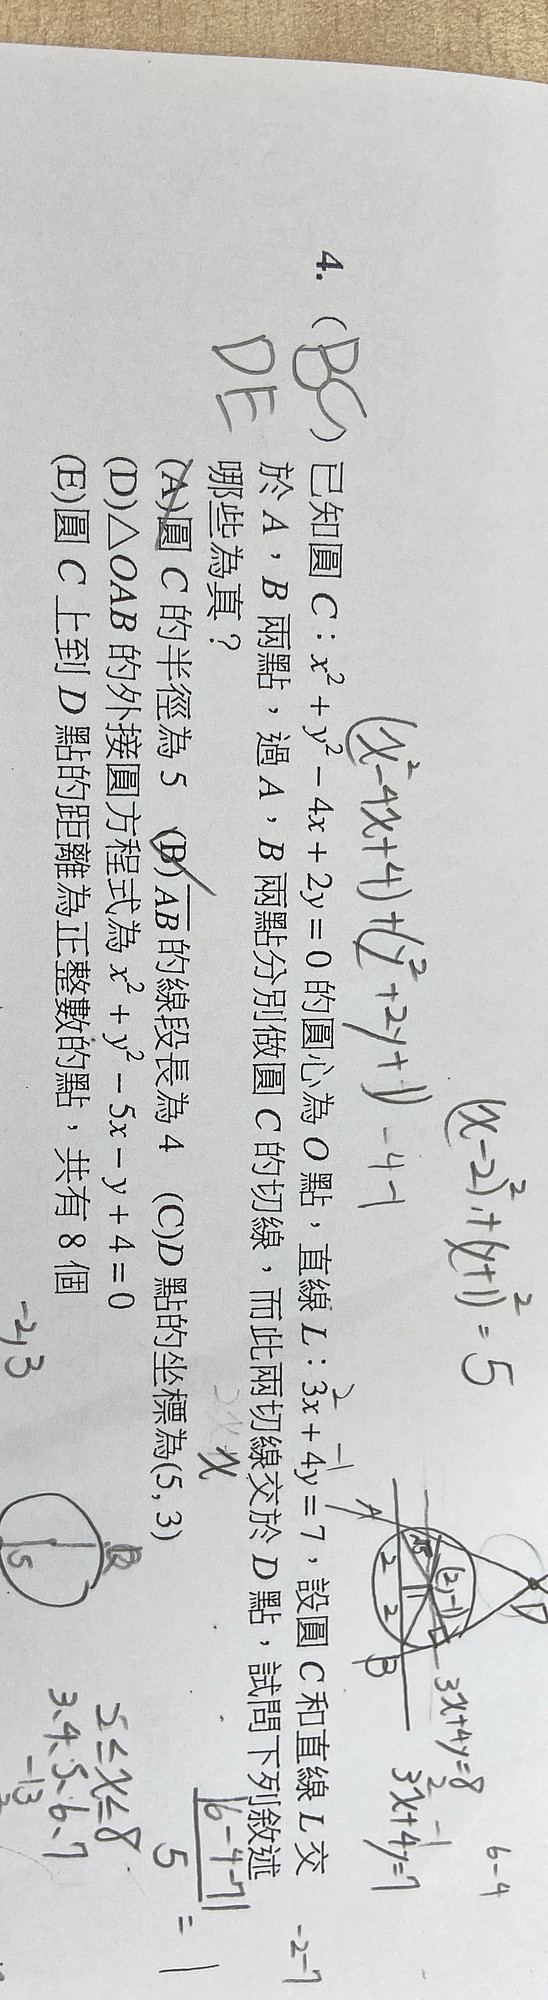 (x-2)²+(y+1)²=5
(x²-4x+4)+(y²+2y+1)-4-1
4. (BC) 已知圓 C：x²+y²-4x+2y=0 的圓心為 O 點，直線 L：3x+4y=7，設圓 C 和直線 L 交
DE 於 A，B 兩點，過 A，B 兩點分別做圓 C 的切線，而此兩切線交於 D 點，試問下列敘述
哪些為真？
(A)圓 C 的半徑為 5 (B)AB 的線段長為 4 (C)D 點的坐標為(5, 3)
(D)△OAB 的外接圓方程式為 x²+y²-5x-y+4=0
(E)圓 C 上到 D 點的距離為正整數的點，共有 8 個
D
A
B
(2,-1)
2
2
3x+4y=8
2 -1
3x+4y=7
6-4
-2-7
|6-4-7|
5
=1
x
-2,3
5
3、4、5、6、7
-13